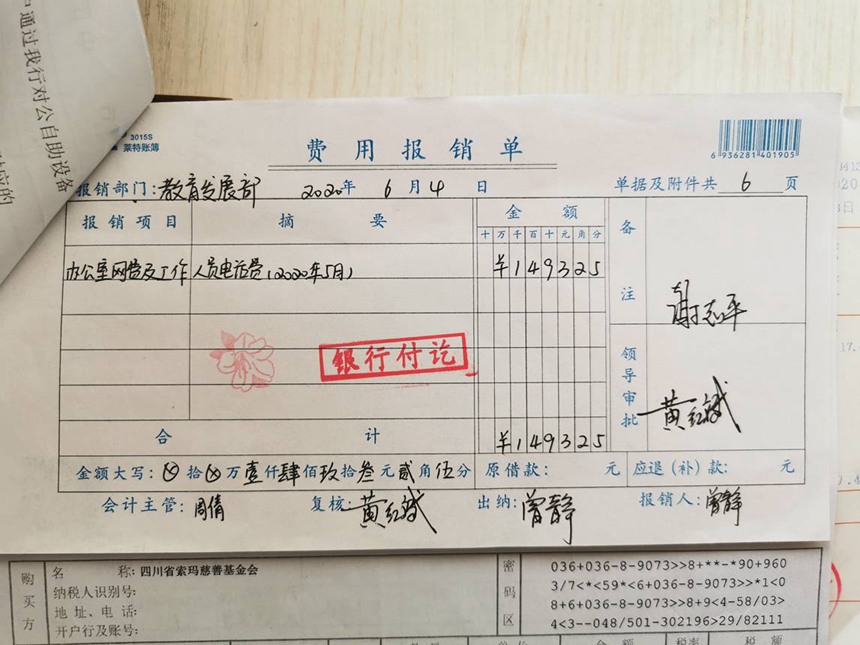 中通过我行对公自助设备
3015S
莱特账簿
费用报销单
6 936281 401905
报销部门：教育发展部 2020年 6月4日 单据及附件共 6 页
报销项目 摘要 金额 备注
十万千百十元角分
办公室网费及工作人员电话费（2020年5月） ¥149325
谢志平
银行付讫
领导审批
黄红斌
合计 ¥149325
金额大写：⊗拾⊗万壹仟肆佰玖拾叁元贰角伍分 原借款： 元 应退（补）款： 元
会计主管：周倩 复核：黄红斌 出纳：曾静 报销人：曾静
购买方
名称：四川省索玛慈善基金会
纳税人识别号：
地址、电话：
开户行及账号：
密码区
036+036-8-9073>>8+**-*90+960
3/7<*<59*<6+036-8-9073>>*1<0
8+6+036-8-9073>>8+9<4-58/03>
4<3--048/501-302196>29/82111
金额 税率 税额